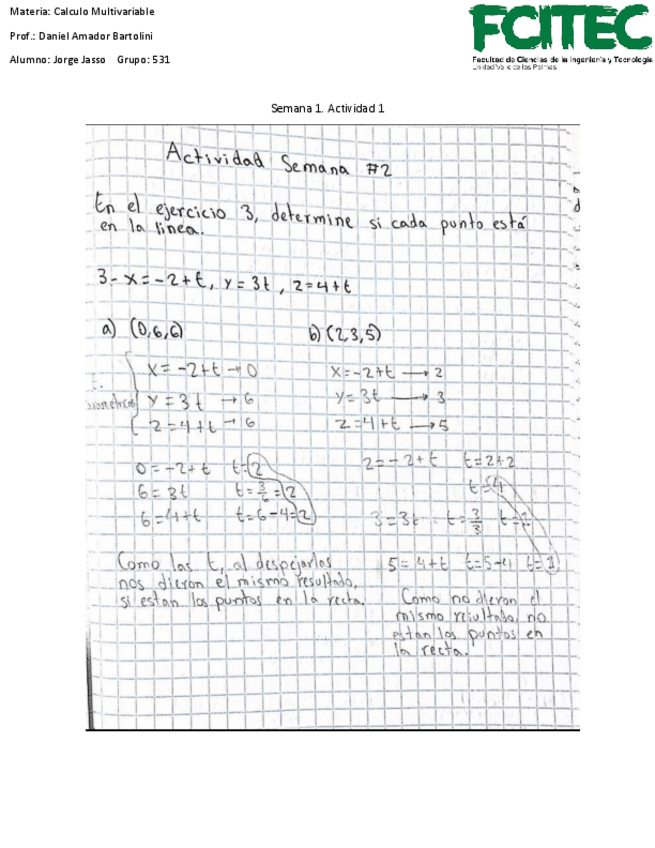 Materia: Calculo Multivariable
Prof.: Daniel Amador Bartolini
Alumno: Jorge Jasso Grupo: 531
FCITEC
Facultad de Ciencias de la Ingeniería y Tecnología
Unidad Valle de las Palmas
Semana 1. Actividad 1
Actividad Semana #2
En el ejercicio 3, determine si cada punto está
en la linea.
3- x=-2+t, y=3t, z=4+t
a) (0,6,6) b) (2,3,5)
x=-2+t → 0 x=-2+t → 2
y=3t → 6 y=3t → 3
z=4+t → 6 z=4+t → 5
0=-2+t t=2 2=-2+t t=2+2
t=4
6=3t t=3/6=2
6=4+t t=6-4=2 3=3t t=3/3 t=1
Como las t, al despejarlas 5=4+t t=5-4 t=1
nos dieron el mismo resultado,
si estan los puntos en la recta. Como no dieron el
mismo resultado, no
estan los puntos en
la recta.